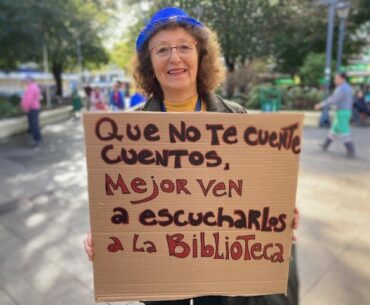 QUE NO TE CUENTEN
CUENTOS,
MEJOR VEN
A ESCUCHARLOS
A LA BIBLIOTECA